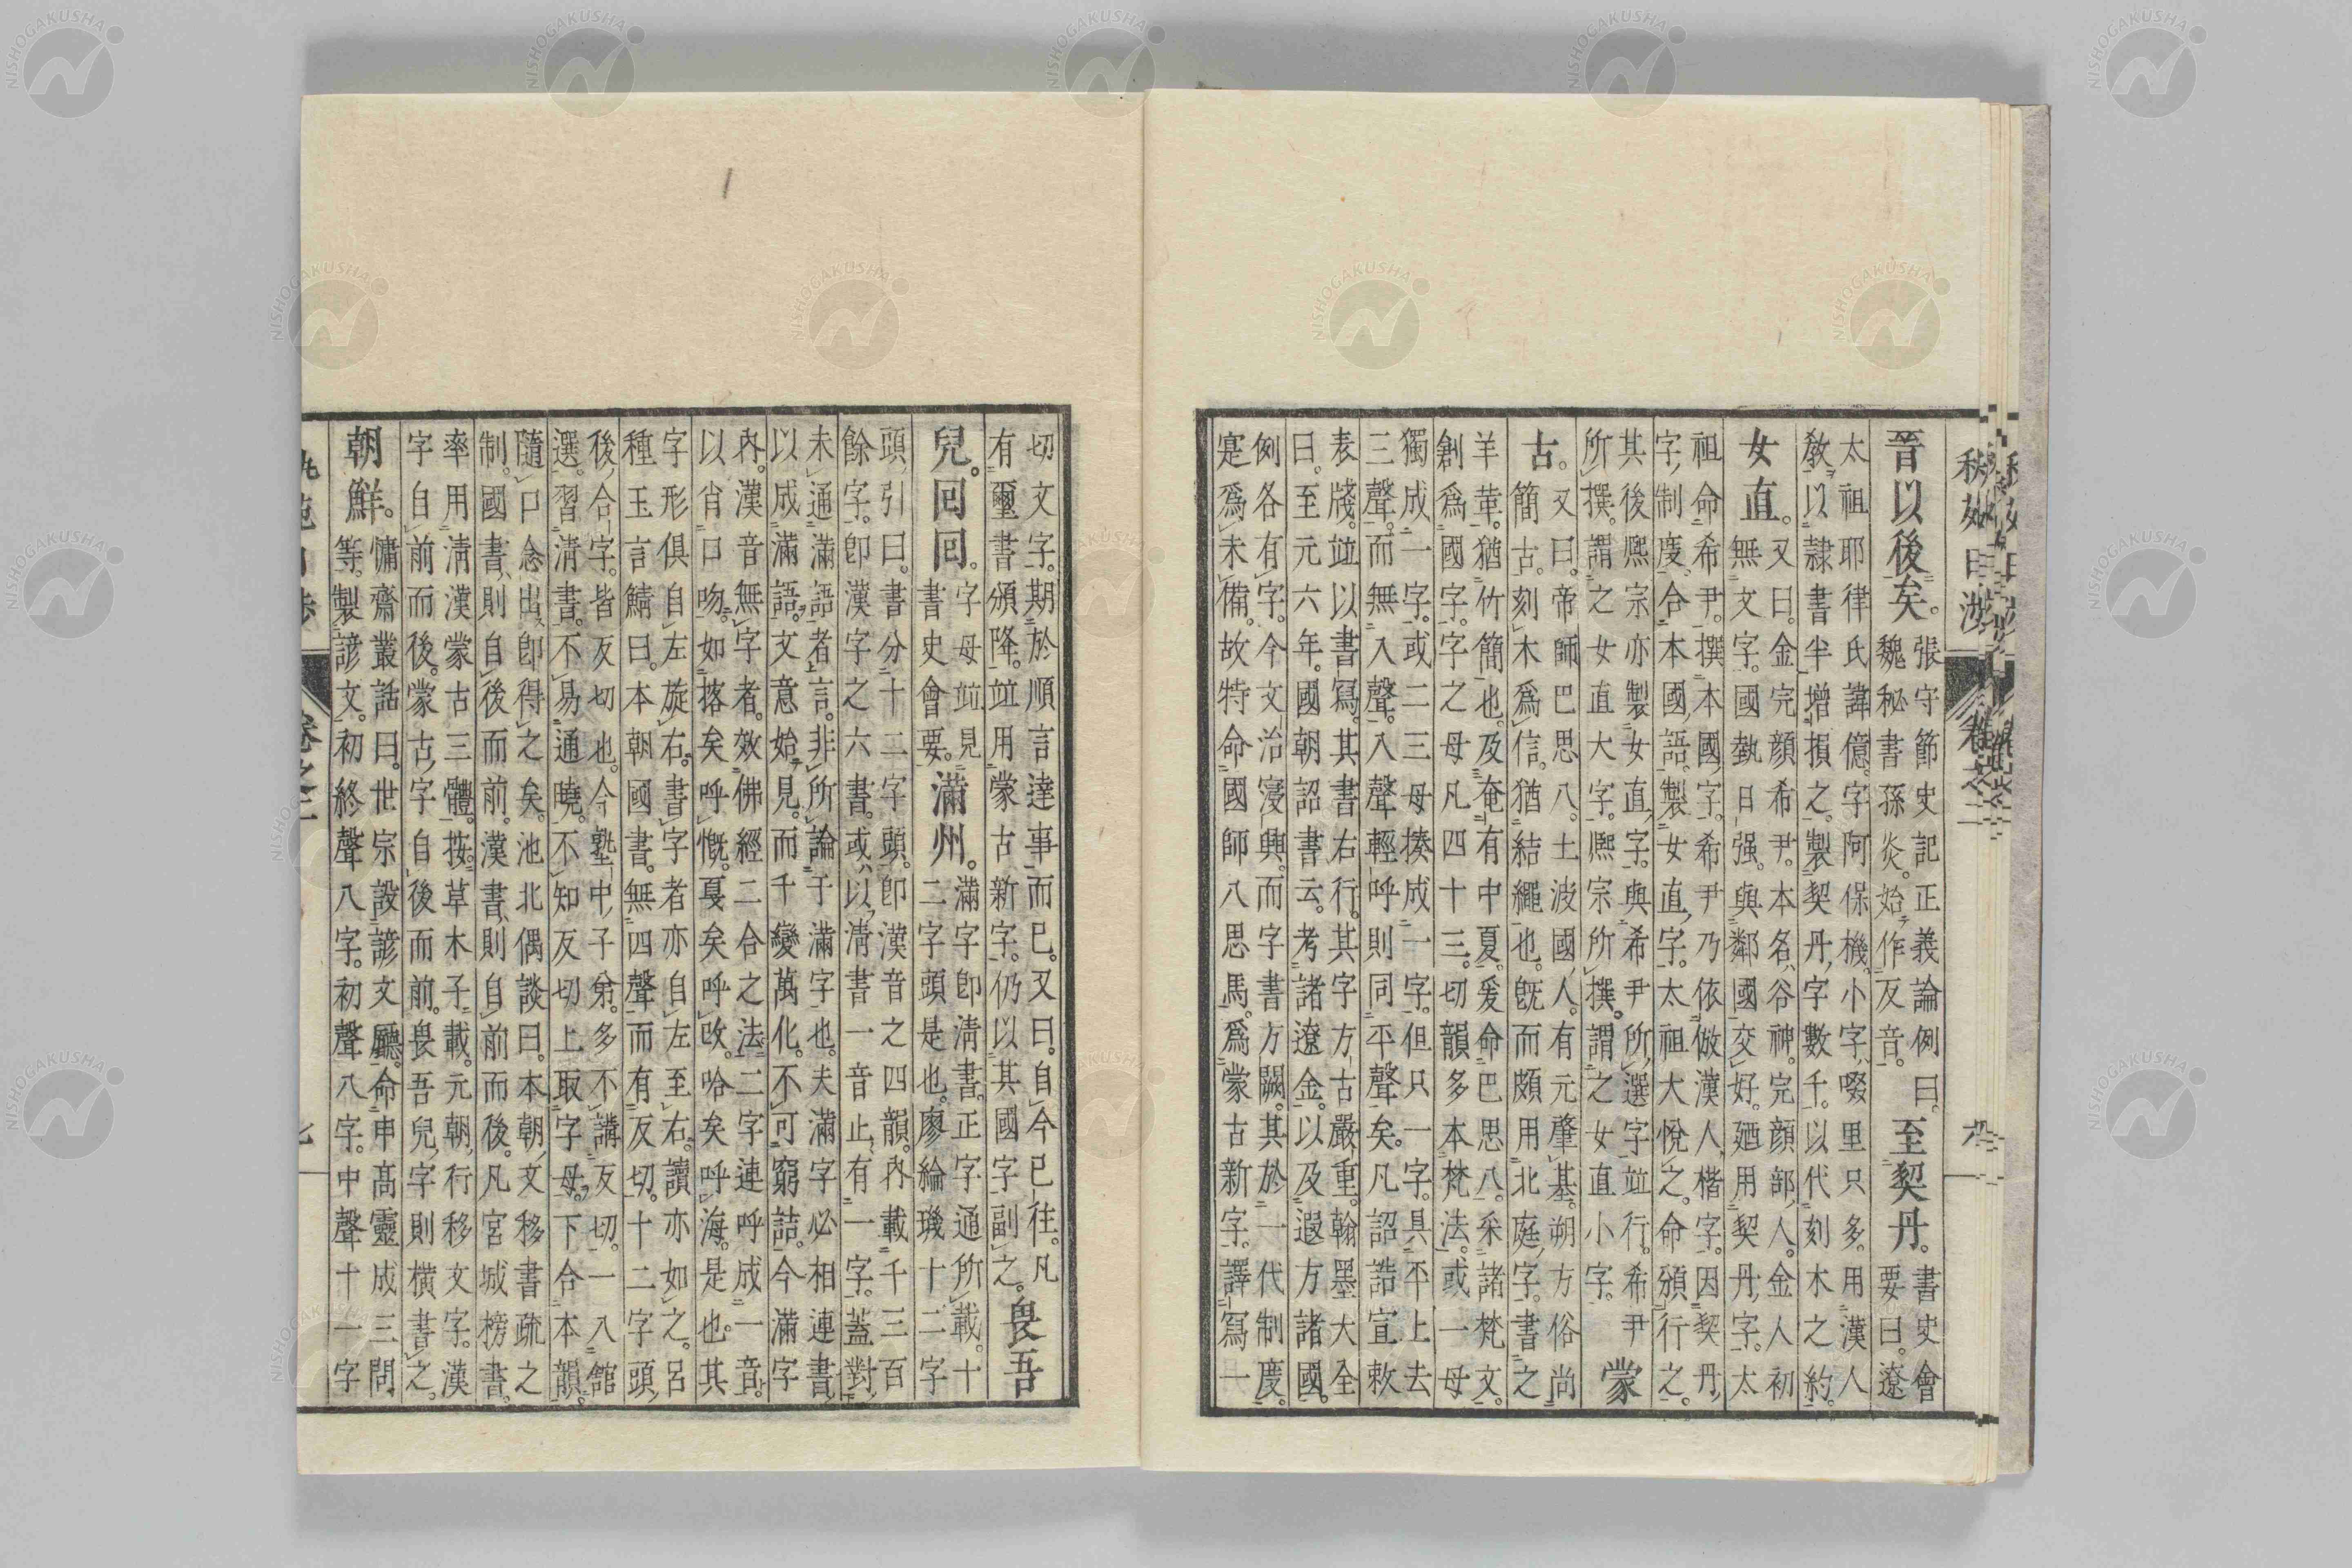 晉以後矣。張守節史記正義論例曰。魏秘書孫炎。始作反音。至契丹。書史會要曰。遼
太祖耶律氏諱億。字阿保機。小字啜里只。多用漢人
教以隷書半增損之。製契丹字數千。以代刻木之約。
女直。又曰。金完顏希尹。本名谷神。完顏部人。金人初
無文字。國勢日强。與鄰國交好。廼用契丹字。太
祖命希尹。撰本國字。希尹乃依倣漢人楷字。因契丹
字制度。合本國語。製女直字。太祖大悅之。命頒行之。
其後熙宗亦製女直字。與希尹所選字竝行。希尹
所撰。謂之女直大字。熙宗所撰。謂之女直小字。蒙
古。又曰。帝師巴思八。土波國人。有元肇基。朔方俗尚
簡古。刻木爲信。猶結繩也。旣而頗用北庭字。書之
羊革。猶竹簡也。及奄有中夏。爰命巴思八。采諸梵文。
創爲國字。字之母凡四十三。切韻多本梵法。或一母
獨成一字。或二三母揍成一字。但只一字。具平上去
三聲。而無入聲。入聲輕呼則同平聲矣。凡詔誥宣敕
表牋。竝以書寫。其書右行。其字方古嚴重。翰墨大全
曰。至元六年。國朝詔書云。考諸遼金。以及遐方諸國。
例各有字。今文治寖興。而字書方闕。其於一代制度。
寔爲未備。故特命國師八思馬。爲蒙古新字。譯寫一
切文字。期於順言達事而已。又曰。自今已往。凡
有璽書頒降。竝用蒙古新字。仍以其國字副之。畏吾
兒。回回。字母竝見書史會要。滿州。滿字卽淸書。正字通所載。十
二字頭是也。廖綸璣十二字
頭引曰。書分十二字頭。卽漢音之四韻。內載千三百
餘字。卽漢字之六書。或以淸書一音止有一字。蓋對
未通滿語者言。非所論于滿字也。夫滿字必相連書
以成滿語。文意始見。而千變萬化。不可窮詰。今滿字
內。漢音無字者。效佛經二合之法。二字連呼成一音。
以肖口吻。如揢矣呼慨。戛矣呼改。哈矣呼海。是也。其
字形俱自左旋右。書字者亦自左至右。讀亦如之。呂
種玉言鯖曰。本朝國書。無四聲而有反切。十二字頭
後合字。皆反切也。今塾中子弟。多不講反切。一入館
選。習淸書。不易通曉。不知反切上取字母。下合本韻。
隨口念出。卽得之矣。池北偶談曰。本朝文移書疏之
制。國書則自後而前。漢書則自前而後。凡宮城榜書。
率用淸漢蒙古三體。按草木子載。元朝行移文字。漢
字自前而後。蒙古字自後而前。畏吾兒字則橫書之。
朝鮮。慵齋叢話曰。世宗設諺文廳。命申高靈成三問
等。製諺文。初終聲八字。初聲八字。中聲十一字